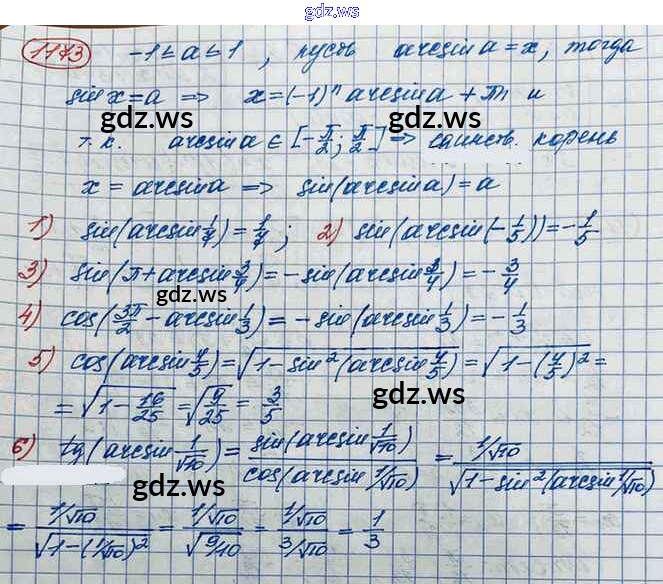 gdz.ws
1173 -1≤a≤1, пусть arcsin a = x, тогда
sin x = a => x = (-1)ⁿ arcsin a + πn и
gdz.ws gdz.ws
т.к. arcsin a ∈ [-π/2; π/2] => единств. корень
x = arcsin a => sin(arcsin a) = a
1) sin(arcsin 1/7) = 1/7; 2) sin(arcsin(-1/5)) = -1/5
3) sin(π + arcsin 3/4) = -sin(arcsin 3/4) = -3/4
gdz.ws
4) cos(3π/2 - arcsin 1/3) = -sin(arcsin 1/3) = -1/3
5) cos(arcsin 4/5) = √(1-sin²(arcsin 4/5)) = √(1-(4/5)²) =
= √(1-16/25) = √(9/25) = 3/5
gdz.ws
6) tg(arcsin 1/√10) = sin(arcsin 1/√10)/cos(arcsin 1/√10) = 1/√10/√(1-sin²(arcsin 1/√10))
gdz.ws
= 1/√10/√(1-(1/√10)²) = 1/√10/√(9/10) = 1/√10/3/√10 = 1/3
gdz.ws